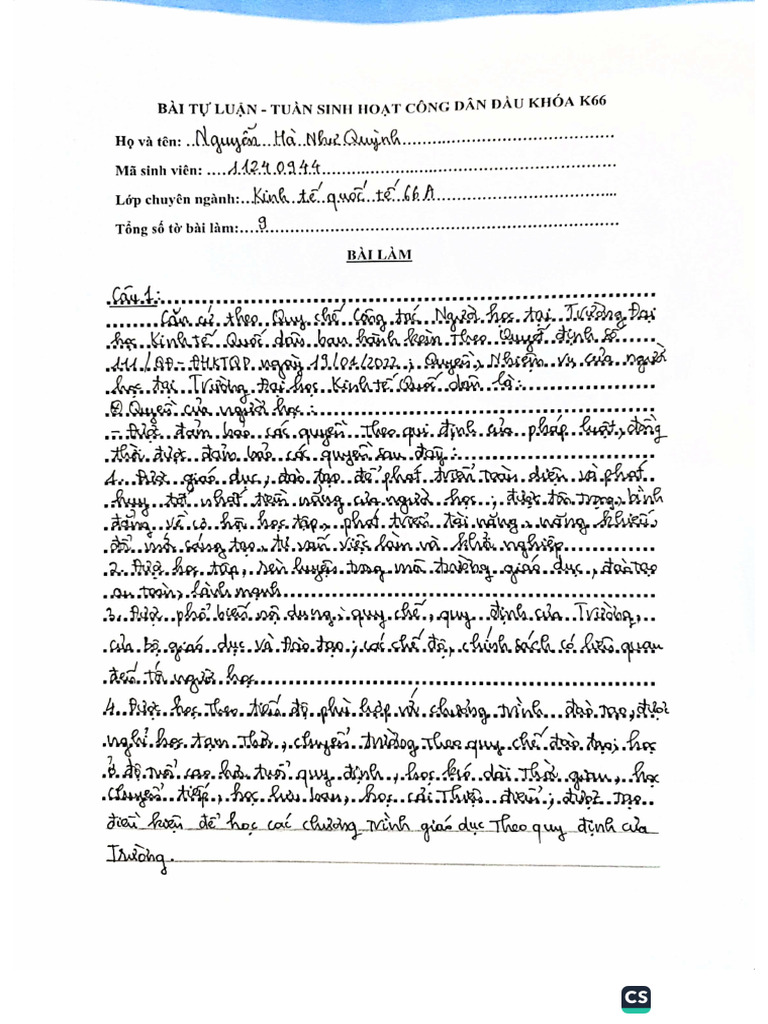 BÀI TỰ LUẬN - TUẦN SINH HOẠT CÔNG DÂN ĐẦU KHÓA K66
Họ và tên: Nguyễn Hà Như Quỳnh
Mã sinh viên: 11240944
Lớp chuyên ngành: Kinh tế quốc tế 66A
Tổng số tờ bài làm: 9
BÀI LÀM
Câu 1:
Căn cứ theo Quy chế Công tác Người học tại Trường Đại
học Kinh tế Quốc dân ban hành kèm theo Quyết định số
111/QĐ-ĐHKTQD ngày 19/01/2022; Quyền, Nhiệm vụ của người
học tại Trường Đại học Kinh tế Quốc dân là:
Quyền của người học:
- Được đảm bảo các quyền theo qui định của pháp luật, đồng
thời được đảm bảo các quyền sau đây:
1. Được giáo dục, đào tạo để phát triển toàn diện và phát
huy tốt nhất tiềm năng của người học; được tôn trọng, bình
đẳng về cơ hội học tập, phát triển tài năng, năng khiếu,
đổi mới sáng tạo, tư vấn việc làm và khởi nghiệp
2. Được học tập, rèn luyện trong môi trường giáo dục, đào tạo
an toàn, lành mạnh
3. Được phổ biến nội dung: quy chế, quy định của Trường,
của bộ giáo dục và Đào tạo; các chế độ, chính sách có liên quan
đến tới người học
4. Được học theo tiến độ phù hợp với chương trình đào tạo, được
nghỉ học tạm thời, chuyển trường theo quy chế đào tạo; học
ở độ tuổi cao hơn tuổi quy định, học kéo dài thời gian, học
chuyển tiếp, học lưu ban, học cải thiện điểm; được tạo
điều kiện để học các chương trình giáo dục theo quy định của
Trường.
CS